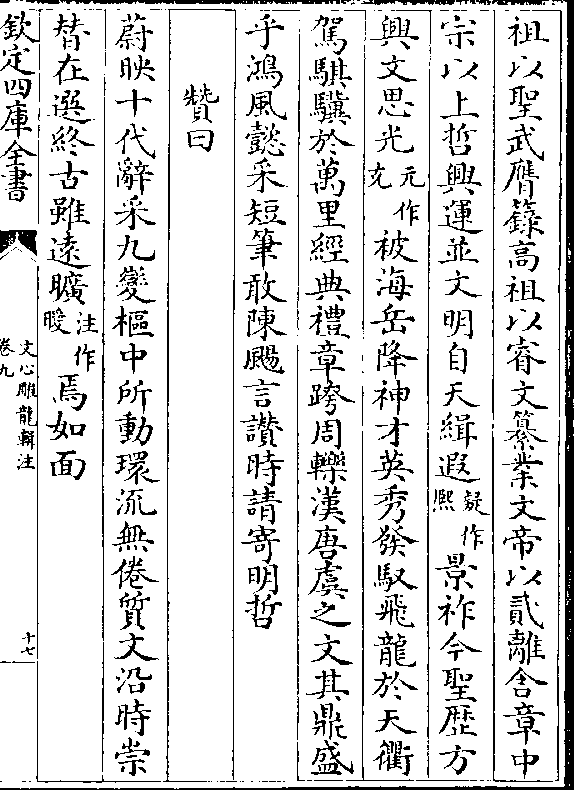 祖以聖武膺籙高祖以睿文纂業文帝以貳離含章中
宗以上哲興運並文明自天緝遐疑作熙景祚今聖歴方
興文思光元作充被海岳降神才英秀發馭飛龍於天衢
駕騏驥於萬里經典禮章跨周轢漢唐虞之文其鼎盛
乎鴻風懿采短筆敢陳颺言讃時請寄明哲
贊曰
蔚映十代辭采九變樞中所動環流無倦質文沿時崇
替在選終古雖遠曠注作曖焉如面
欽定四庫全書
文心雕龍輯注
卷九
十七